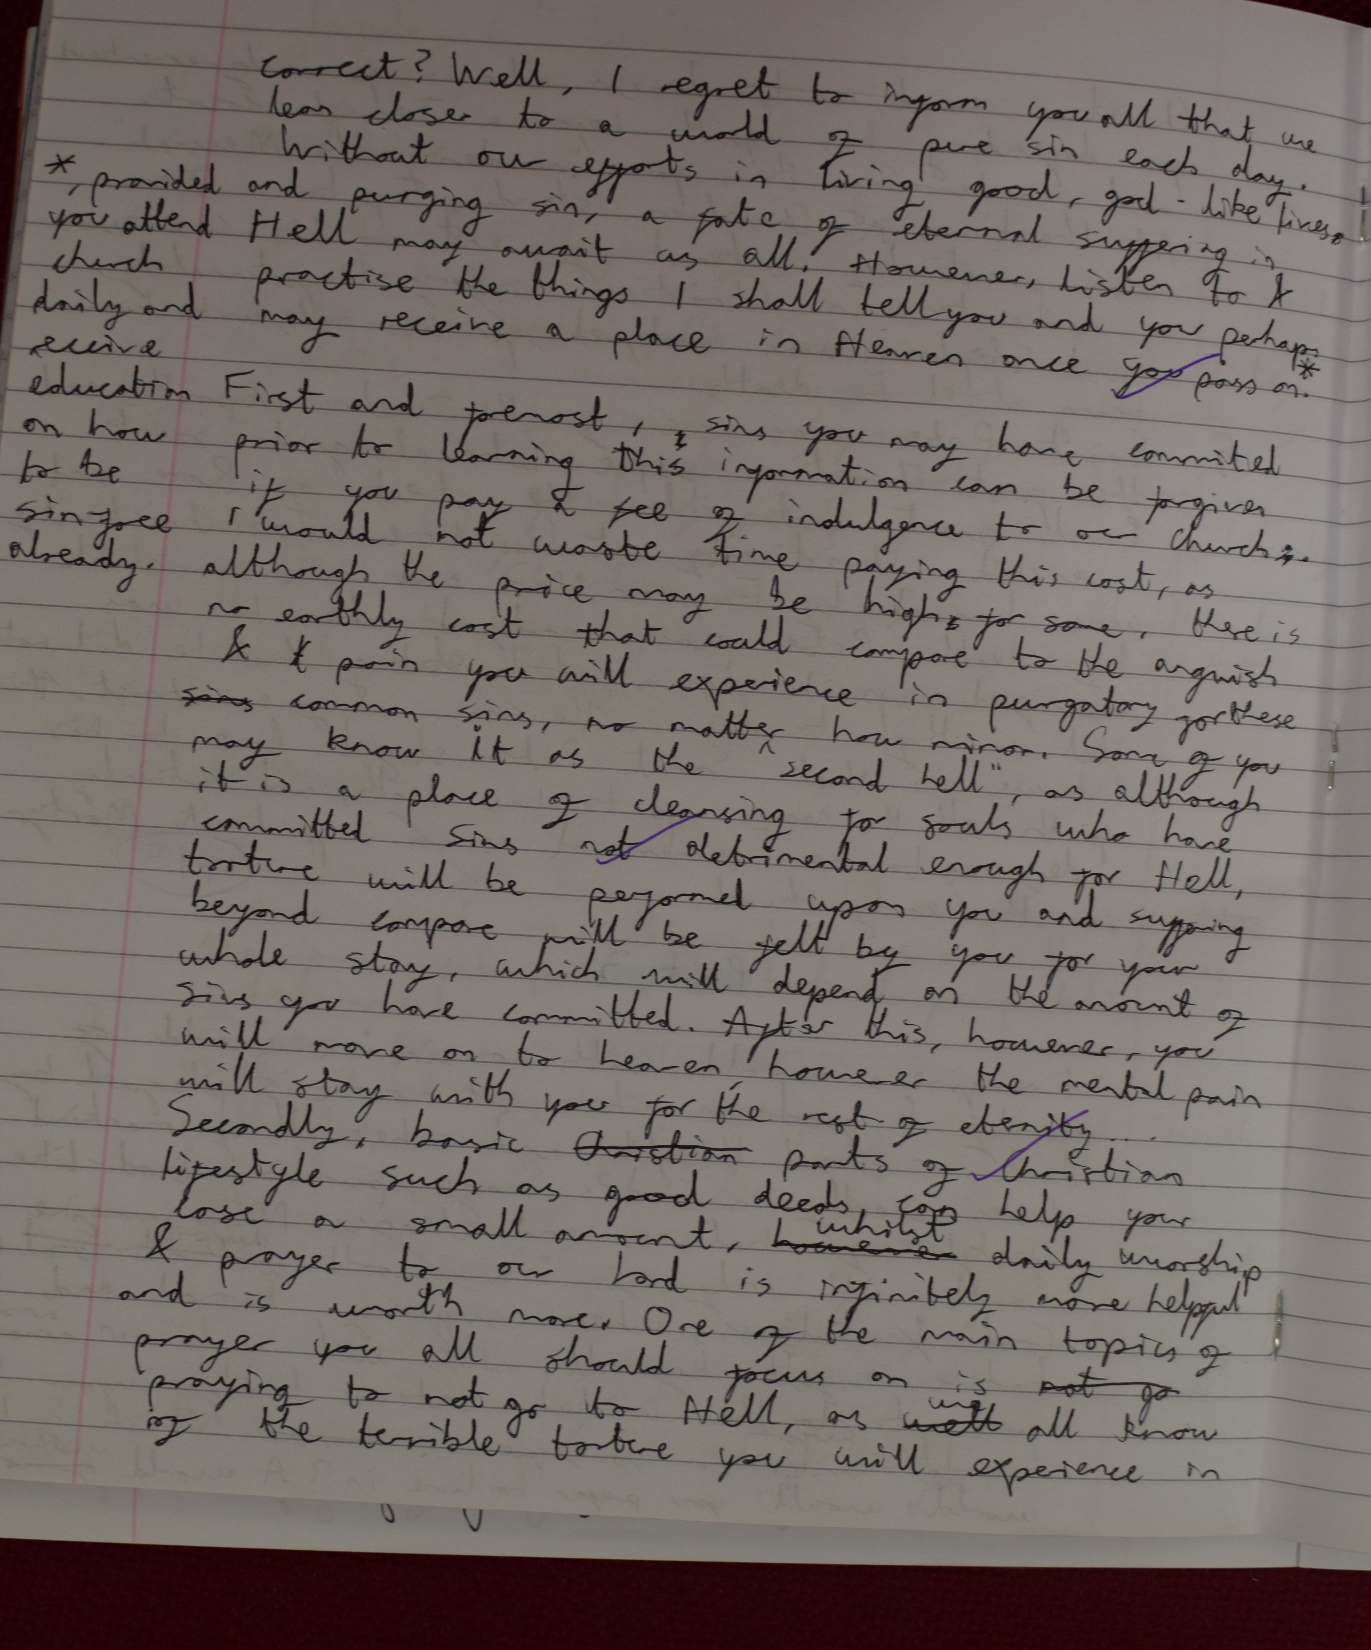 correct? Well, I regret to inform you all that we
lean closer to a world of pure sin each day.
Without our efforts in living good, god-like lives,
and purging sin, a fate of eternal suffering in
Hell may await us all. However, listen to &
practise the things I shall tell you and you perhaps
may receive a place in Heaven once you pass on.*
*, provided
you attend
church
daily and
receive
education
on how
to be
sin free
already.
First and foremost, sins you may have commited
prior to learning this information can be forgiven
if you pay a fee of indulgence to our church.
I would not waste time paying this cost, as
although the price may be high for some, there is
no earthly cost that could compare to the anguish
& pain you will experience in purgatory for these
sins common sins, no matter how minor. Some of you
may know it as the "second hell", as although
it is a place of cleansing for souls who have
committed sins not detrimental enough for Hell,
torture will be performed upon you and suffering
beyond compare will be felt by you for your
whole stay, which will depend on the amount of
sins you have committed. After this, however, you
will move on to heaven, however the mental pain
will stay with you for the rest of eternity...
Secondly, basic Christian parts of Christian
lifestyle such as good deeds can help your
case a small amount, however whilst daily worship
& prayer to our Lord is infinitely more helpful
and is worth more. One of the main topics of
prayer you all should focus on is not go
praying to not go to Hell, as well we all know
of the terrible torture you will experience in